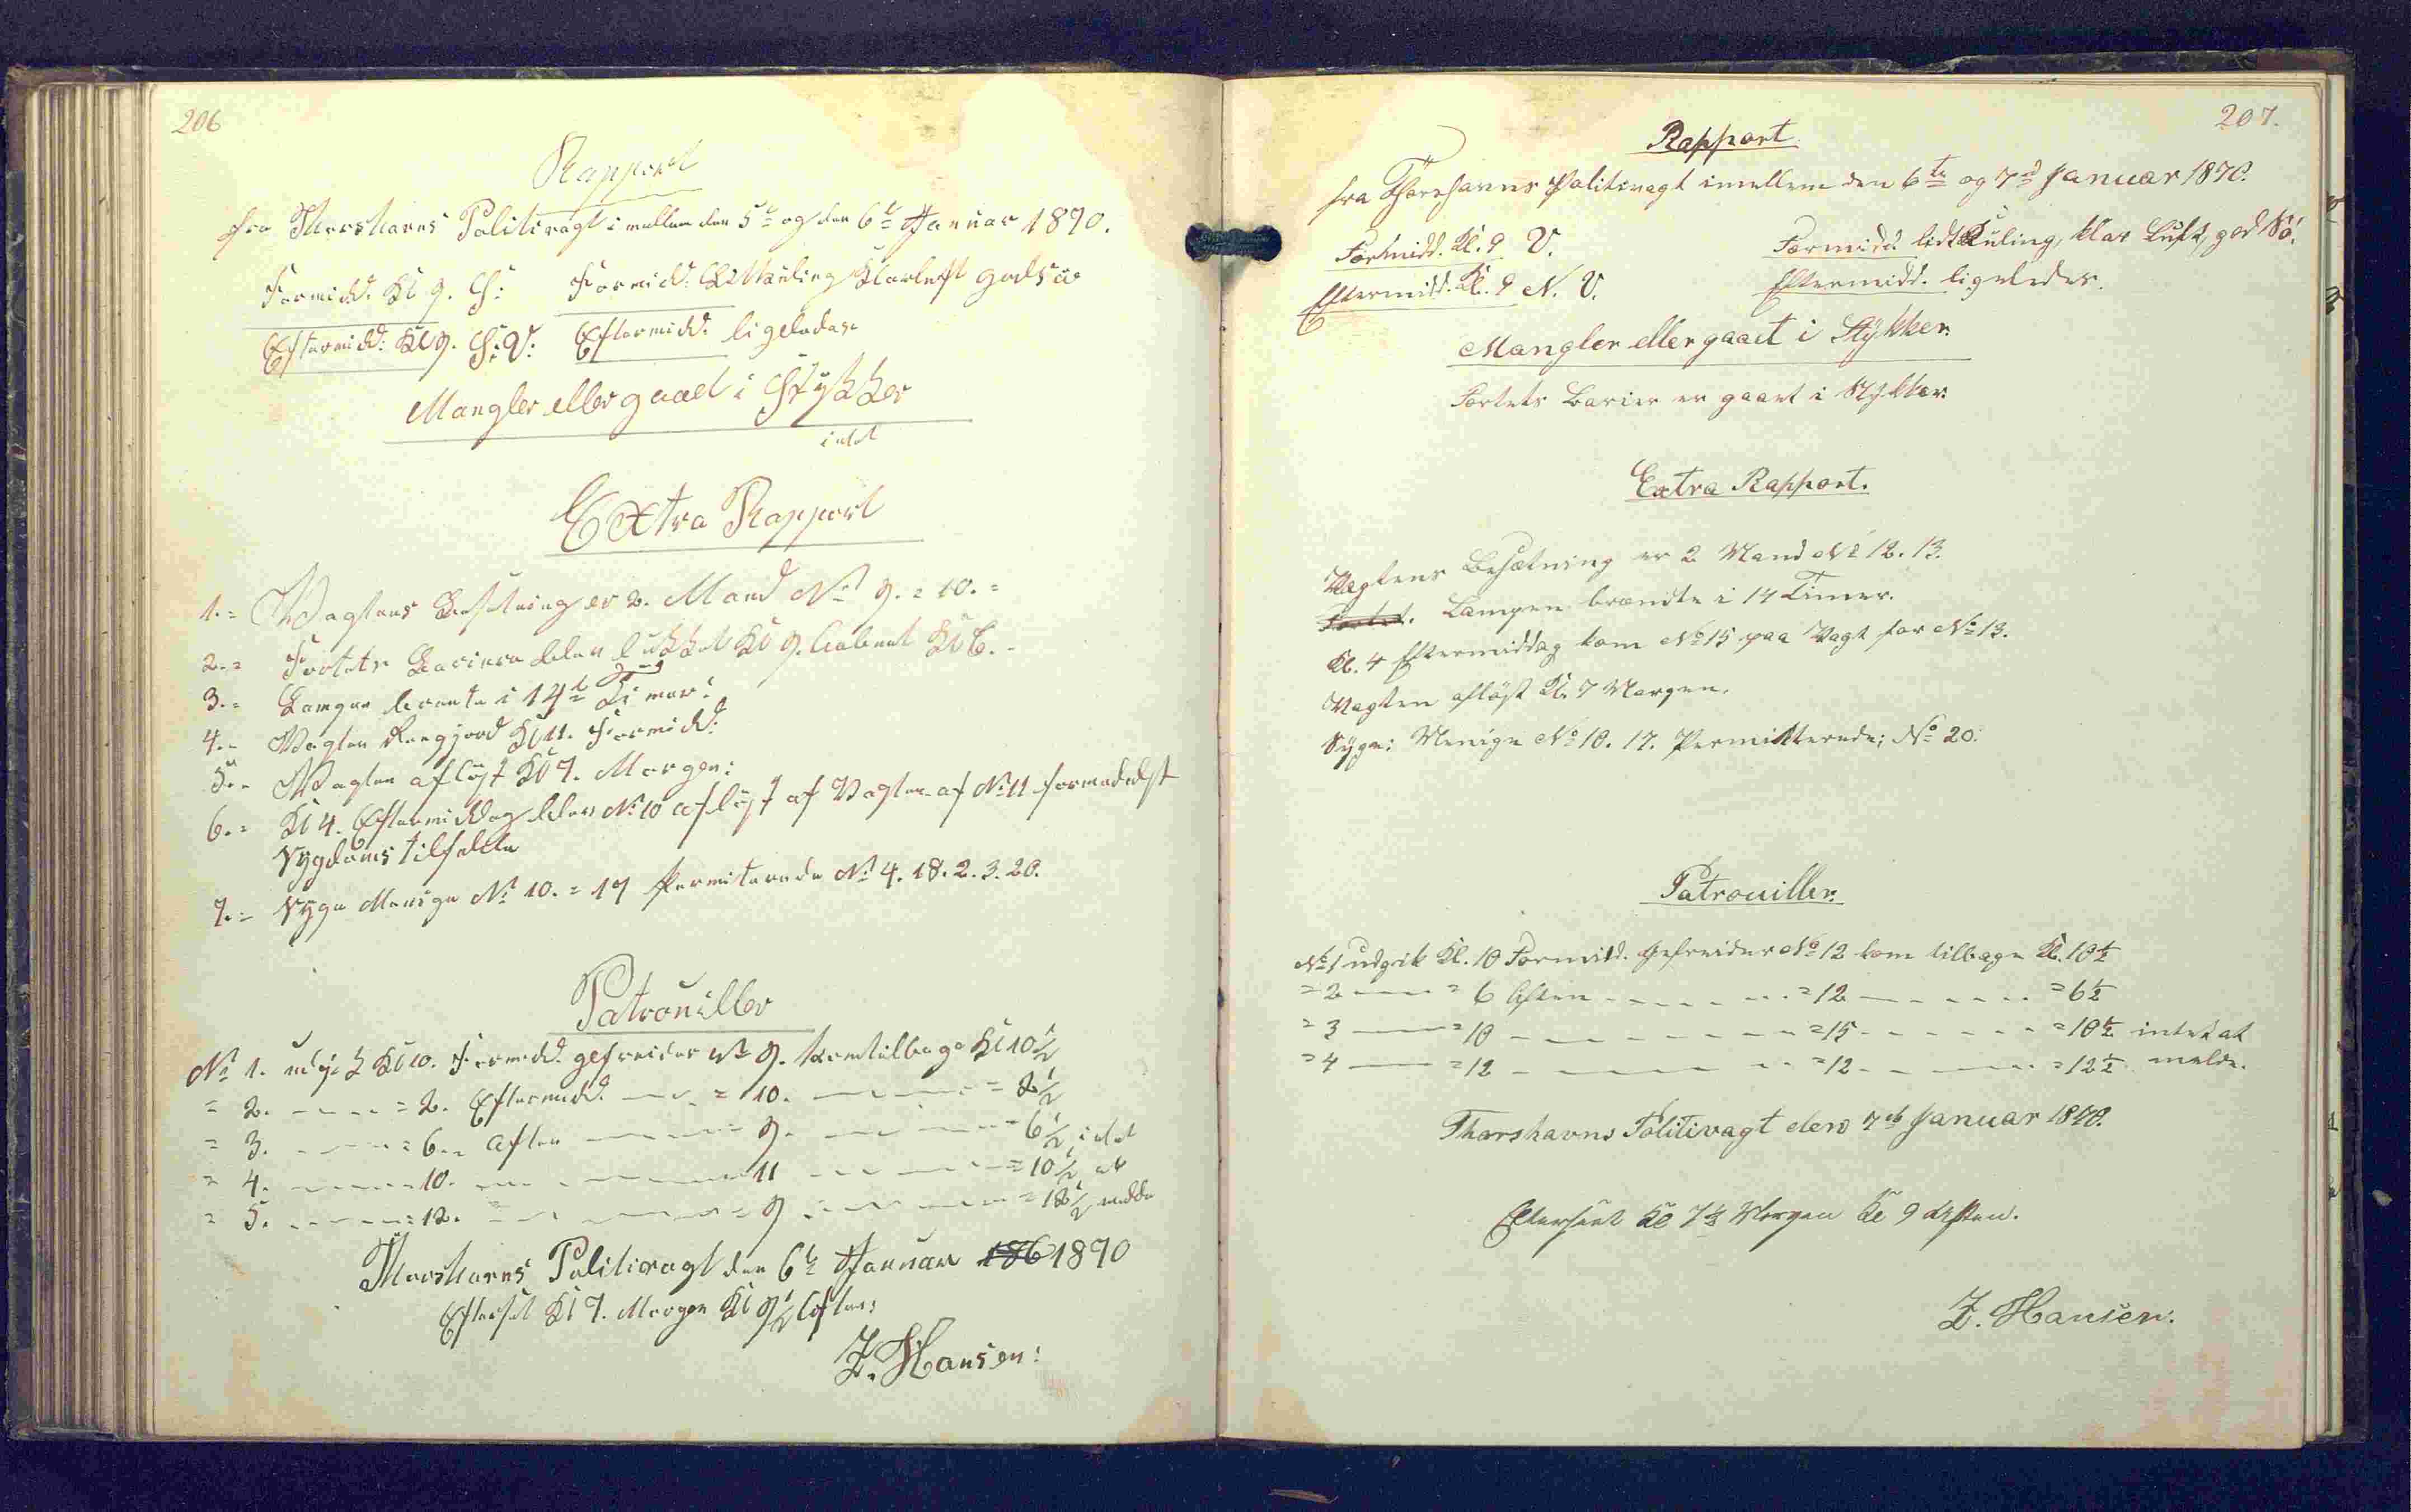 206
Rapport
fra Thorshavns Politivagt imellem den 5t og den 6t Januar 1870.
Formidd. Kl 9. S: Formidd: Lit Kuling Klarluft godsö
Eftermidd: Kl 9. S:V: Eftermidd: ligeledes
Mangler eller gaaet i Stykker
intet
Extra Rapport
1. = Vagtens Besetning er 2. Mand No 9. = 10. =
2. = Fortets Bariere blev lukket Kl 9. Aabnet Kl 6. -
3. = Lampen brente i 14 Timer:
4. = Vagten Rengjord Kl 11. Formidd:
5. = Vagten aflöst Kl 7. Morgen:
6. = Kl 4. Eftermiddag blev No 10 aflöst af Vagten af No 11 formedelst
Sygdoms tilfelde
7. = Syge Menige No 10. = 17 Permiterede No 4. 18. 2. 3. 20.
Patrouiller
No 1. udgik Kl 10. Formidd. gefreider No 9. kom tilbage Kl 10 1/2
= 2. = 2. Eftermidd. = 10. = 2 1/2
= 3. = 6. Aften = 9. = 6 1/2 intet
= 4. = 10. = 11 = 10 1/2 at
= 5. = 12. = 9 = 12 1/2 melde
Thorshavns Politivagt den 6t Januar 186 1870
Efterset Kl 7. Morgen Kl 9 1/2 Aften:
Z. Hansen:
207.
Rapport
fra Thorshavns Politivagt imellem den 6te og 7d Januar 1870.
Formidd. Kl. 9 V. Formidd. lidt Kuling, klar Luft, god Sö.
Eftermidd. Kl. 9 N. V. Eftermidd. ligeledes.
Mangler eller gaaet i Stykker.
Fortets Barier er gaaet i Stykker.
Extra Rapport.
Vagtens Besætning er 2 Mand No 12. 13.
Fortet. Lampen brændte i 14 Timer.
Kl. 4 Eftermiddag kom No 15 paa Vagt for No 13.
Vagten aflöst Kl. 7 Morgen.
Syge: Menige No 10. 17. Permitterede; No 20.
Patrouiller.
No 1 udgik Kl. 10 Formidd. Gefreider No 12 kom tilbage Kl. 10 1/2
= 2 = 6 Aften = 12 = 6 1/2
= 3 = 10 = 15 = 10 1/2 intet at
= 4 = 12 = 12 = 12 1/2 melde.
Thorshavns Politivagt den 7de Januar 1870.
Efterseet Kl 7 1/2 Morgen Kl 9 Aften.
Z. Hansen.